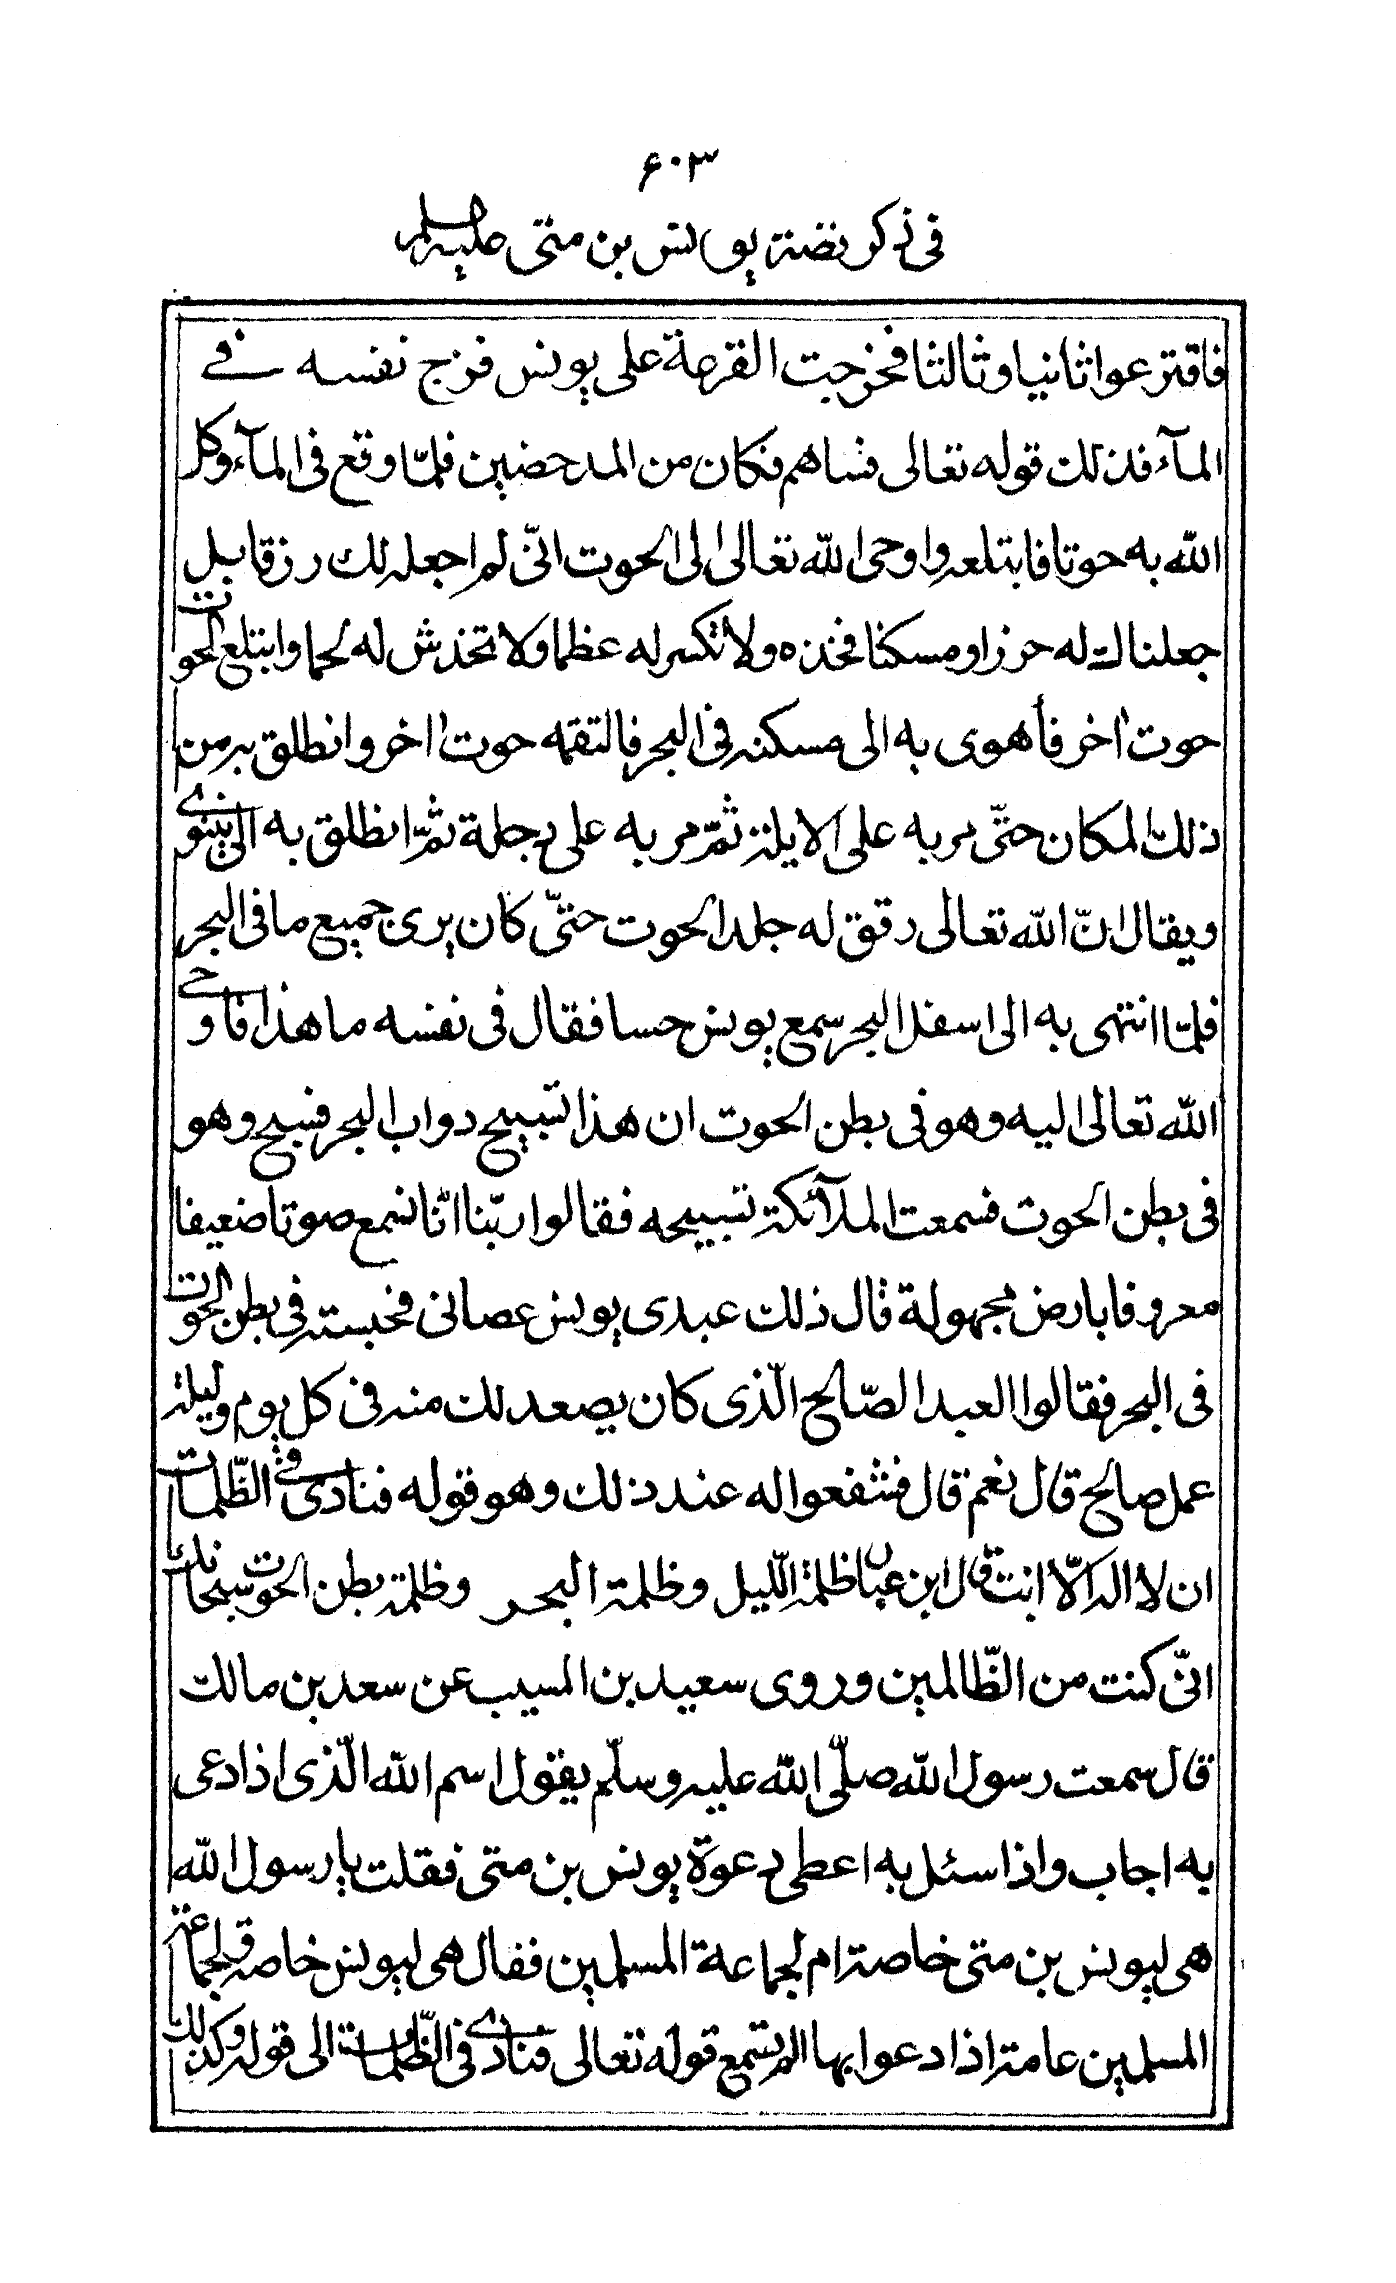 ۶۰۳
فى ذكر قصة يونس بن متى عليه السلم
فاقترعوا ثانيا وثالثا فخرجت القرعة على يونس فزج نفسه فے
المآء فذلك قوله تعالى فساهم فكان من المدحضين فلمّا وقع فى المآء وكل
اللّه به حوتا فابتلعه واوحى اللّه تعالى الى الحوت انّى لم اجعله لك رزقا بل
جعلناك له حرزا ومسكنا فخذه ولا تكسر له عظما ولا تخدش له لحما وابتلع الحوت
حوت اخر فأهوى به الى مسكنه فى البحر فالتقمه حوت اخر وانطلق به من
ذلك المكان حتّى مر به على الايلة ثمّ مر به على دجلة ثمّ انطلق به الى نينوى
ويقال انّ اللّه تعالى رقق له جلد الحوت حتّى كان يرى جميع ما فى البحر
فلمّا انتهى به الى اسفل البحر سمع يونس حسا فقال فى نفسه ما هذا فاوحے
اللّه تعالى اليه وهو فى بطن الحوت ان هذا تسبيح دواب البحر فسبح وهو
فى بطن الحوت فسمعت الملآئكة تسبيحه فقالوا ربّنا انّا نسمع صوتا ضعيفا
معروفا بارض مجهولة قال ذلك عبدى يونس عصانى فحبسته فى بطن الحوت
فى البحر فقالوا العبد الصّالح الّذى كان يصعد لك منه فى كل يوم وليلة
عمل صالح قال نعم قال فشفعوا له عند ذلك وهو قوله فنادى فے الظّلمات
ان لا اله الّا انت قال ابن عباس ظلمة اللّيل وظلمة البحر وظلمة بطن الحوت سبحانك
انّى كنت من الظّالمين وروى سعيد بن المسيب عن سعد بن مالك
قال سمعت رسول اللّه صلّى اللّه عليه وسلّم يقول اسم اللّه الّذى اذا دعى
به اجاب واذا سئل به اعطى دعوة يونس بن متى فقلت يا رسول اللّه
هى ليونس بن متى خاصة ام لجماعة المسلمين فقال هى ليونس خاصة ولجماعة
المسلمين عامة اذا دعوا بها الم تسمع قوله تعالى فنادى فى الظّلمات الى قوله وكذلك